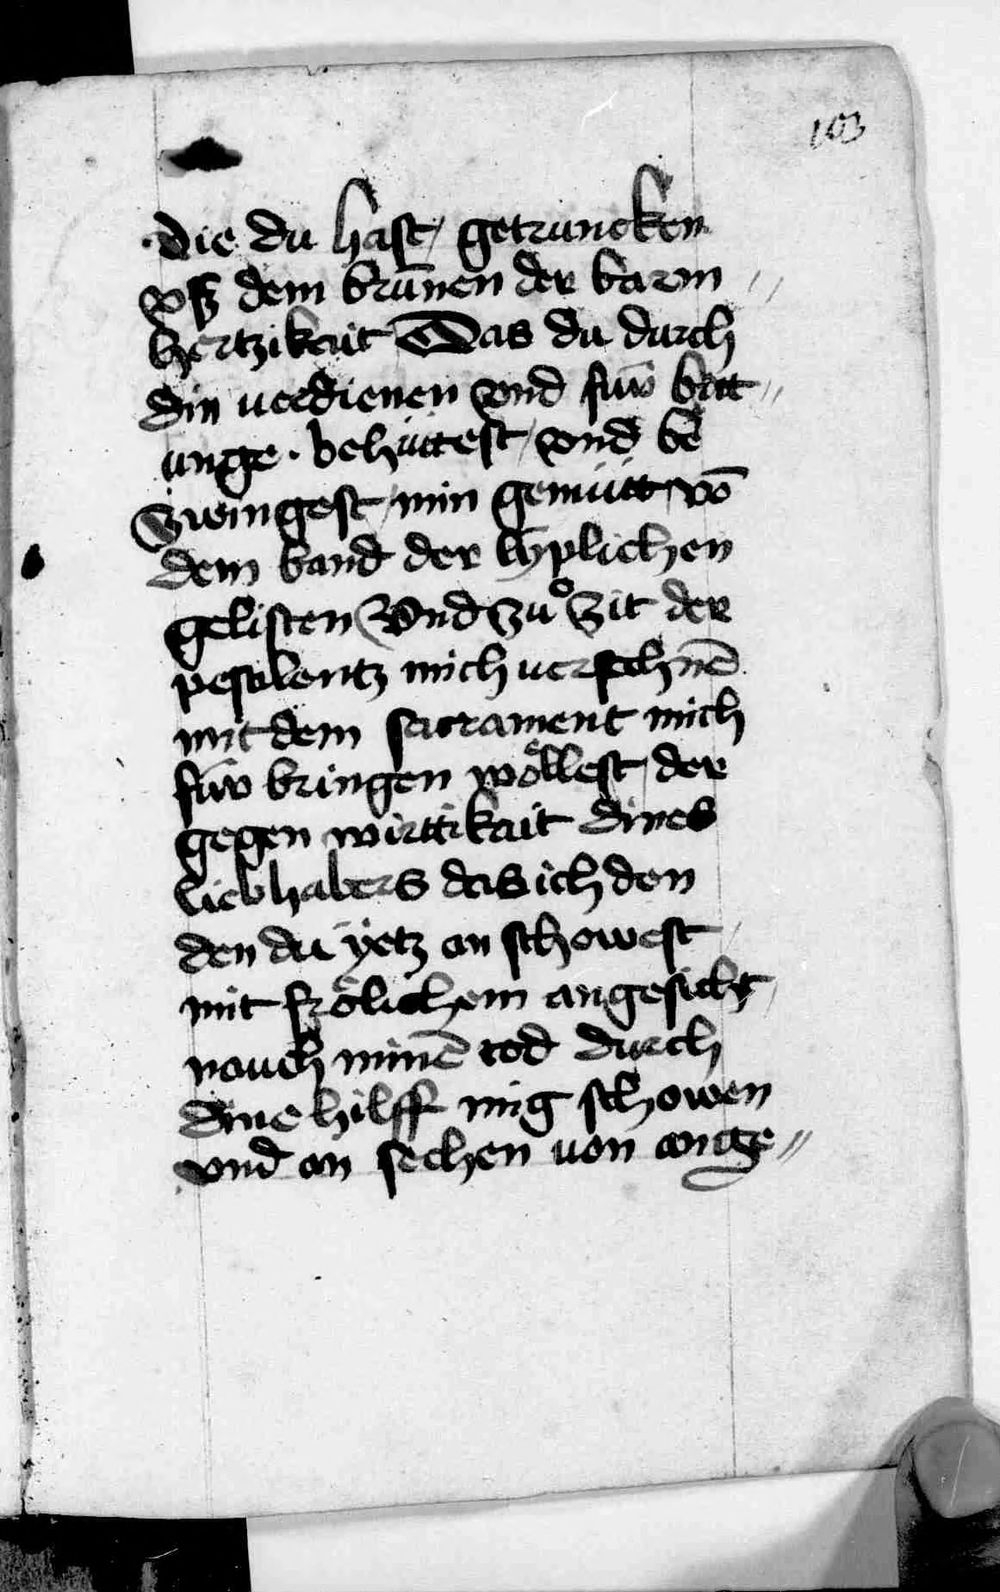 103
die du hast / getruncken
vsß dem brūnen der barm //
hertzikait Das du durch
din uerdienen vnd fuͤr bitt //
unge · behüttest / vnd be
zwingest / min gemütt / vō
dem band der lyplichen
gelisten Vnd zuͦ zit der
pestelentz mich uersechnē
mit dem sacrament mich
fúr bringen wöllest / der
gegen wirttikait dines
liebhabers das ich den
den du yetz an schowest /
mit frölichem angesicht /
nauch minē tod durch
dine hilff mig schowen
vnd an sechen von ange //